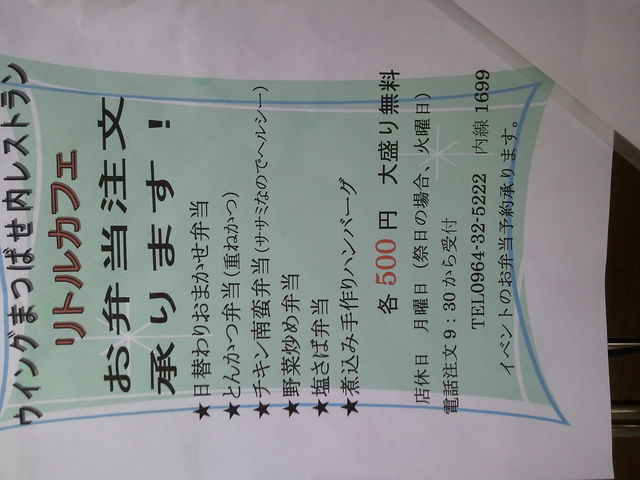 ウイングまつばせ内レストラン
リトルカフェ
お弁当注文
承ります!
★日替わりおまかせ弁当
★とんかつ弁当(重ねかつ)
★チキン南蛮弁当(ササミなのでヘルシー)
★野菜炒め弁当
★塩さば弁当
★煮込み手作りハンバーグ
各500円 大盛り無料
店休日 月曜日(祭日の場合、火曜日)
電話注文9:30から受付
TEL0964-32-5222 内線1699
イベントのお弁当予約承ります。